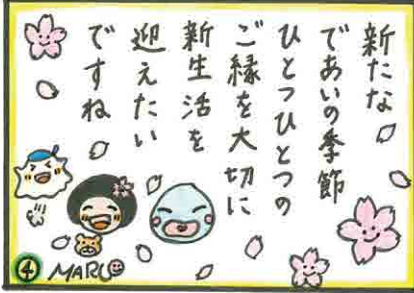 新たな
であいの季節
ひとつひとつの
ご縁を大切に
新生活を
迎えたい
ですね
④ MARU